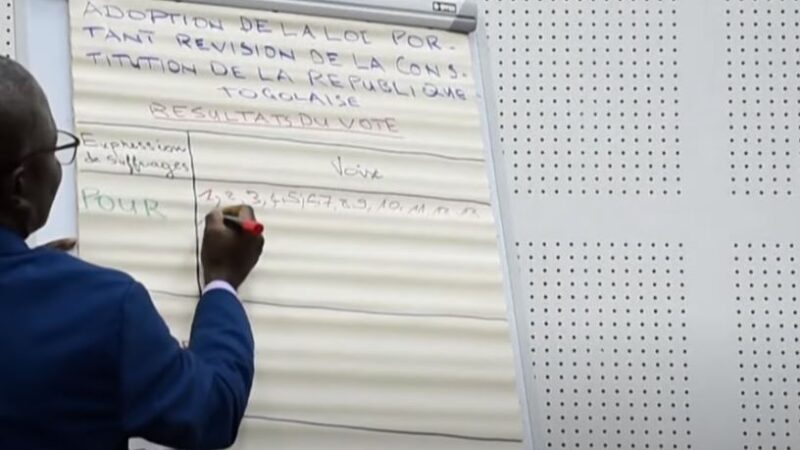 ADOPTION DE LA LOI POR-
TANT REVISION DE LA CONS-
TITUTION DE LA REPUBLIQUE
TOGOLAISE
RESULTATS DU VOTE
Expression
de suffrages
Voix
POUR
1, 2, 3, 4, 5, 6, 7, 8, 9, 10, 11, 12, 13